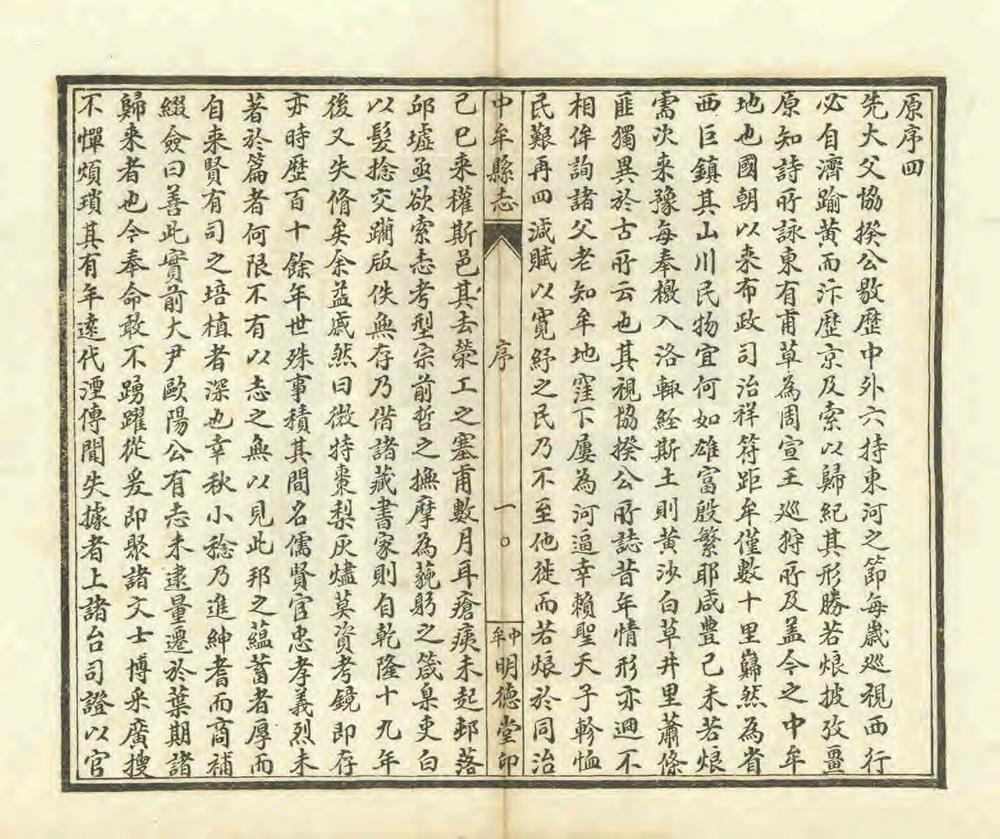 原序四
先大父協揆公敭歷中外六持東河之節每歲巡視西行
必自濟踰黃而汴歷京及索以歸紀其形勝若烺披攷畺
原知詩所詠東有甫草為周宣王巡狩所及盖今之中牟
地也國朝以來布政司治祥符距牟僅數十里巋然為省
西巨鎮其山川民物宜何如雄富殷繁耶咸豊己未若烺
需次來豫每奉檄入洛輙經斯土則黃沙白草井里蕭條
匪獨異於古所云也其視協揆公所誌昔年情形亦迥不
相侔詢諸父老知牟地窪下屢為河逼幸賴聖天子軫恤
民艱再四減賦以寬紓之民乃不至他徙而若烺於同治
中牟縣志
序
一〇
中牟明德堂印
己巳來權斯邑其去滎工之塞甫數月耳瘡痍未起邨落
邱墟亟欲索志考型宗前哲之撫摩為藐躬之箴臬吏白
以髮捻交躪版佚無存乃借諸藏書家則自乾隆十九年
後又失脩矣余益慼然曰微特棗梨灰燼莫資考鏡即存
亦時歷百十餘年世殊事積其間名儒賢官忠孝義烈未
著於篇者何限不有以志之無以見此邦之蘊蓄者厚而
自來賢有司之培植者深也幸秋小稔乃進紳耆而商補
綴僉曰善此實前大尹歐陽公有志未逮量遷於葉期諸
歸來者也今奉命敢不踴躍從爰即聚諸文士博采廣搜
不憚煩瑣其有年遠代湮傳聞失據者上諸台司證以官